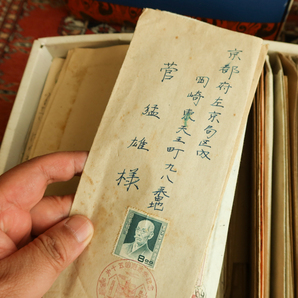 京都府左京区
岡崎東天王町九八番地
菅猛雄様
8